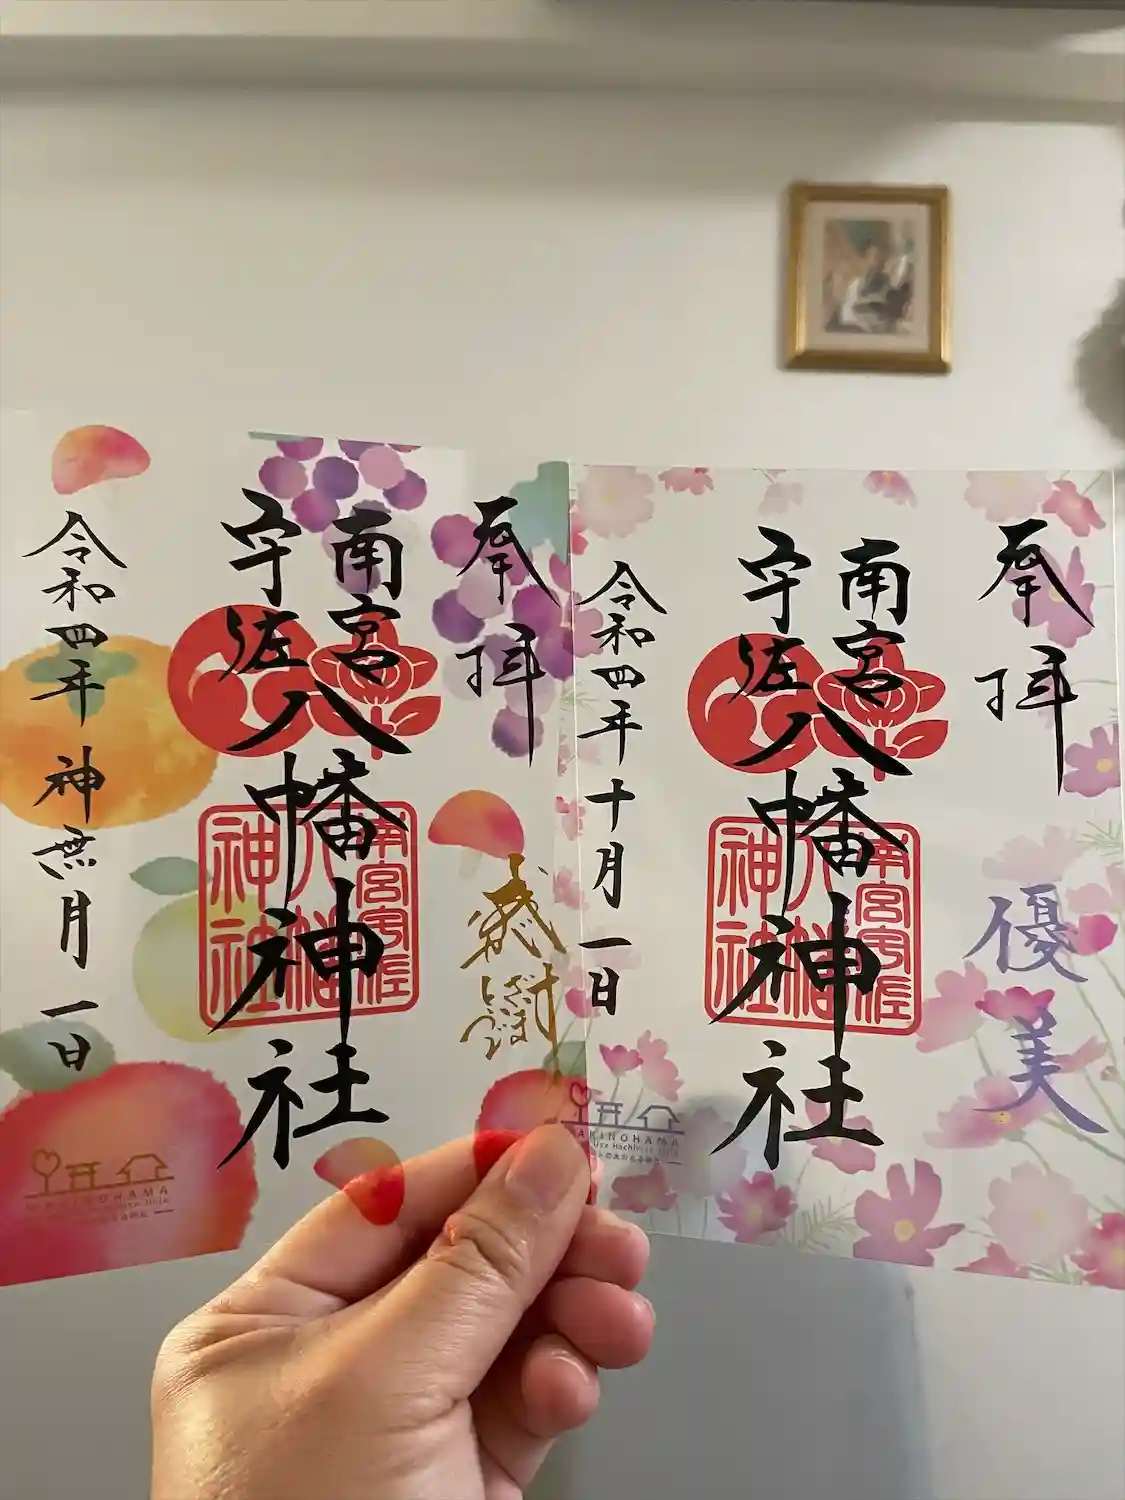 奉拝
南宮
宇佐
八幡神社
感謝
令和四年 神無月 一日
奉拝
南宮
宇佐
八幡神社
優美
令和四年十月一日
南宮宇佐
八幡
神社
南宮宇佐
八幡
神社